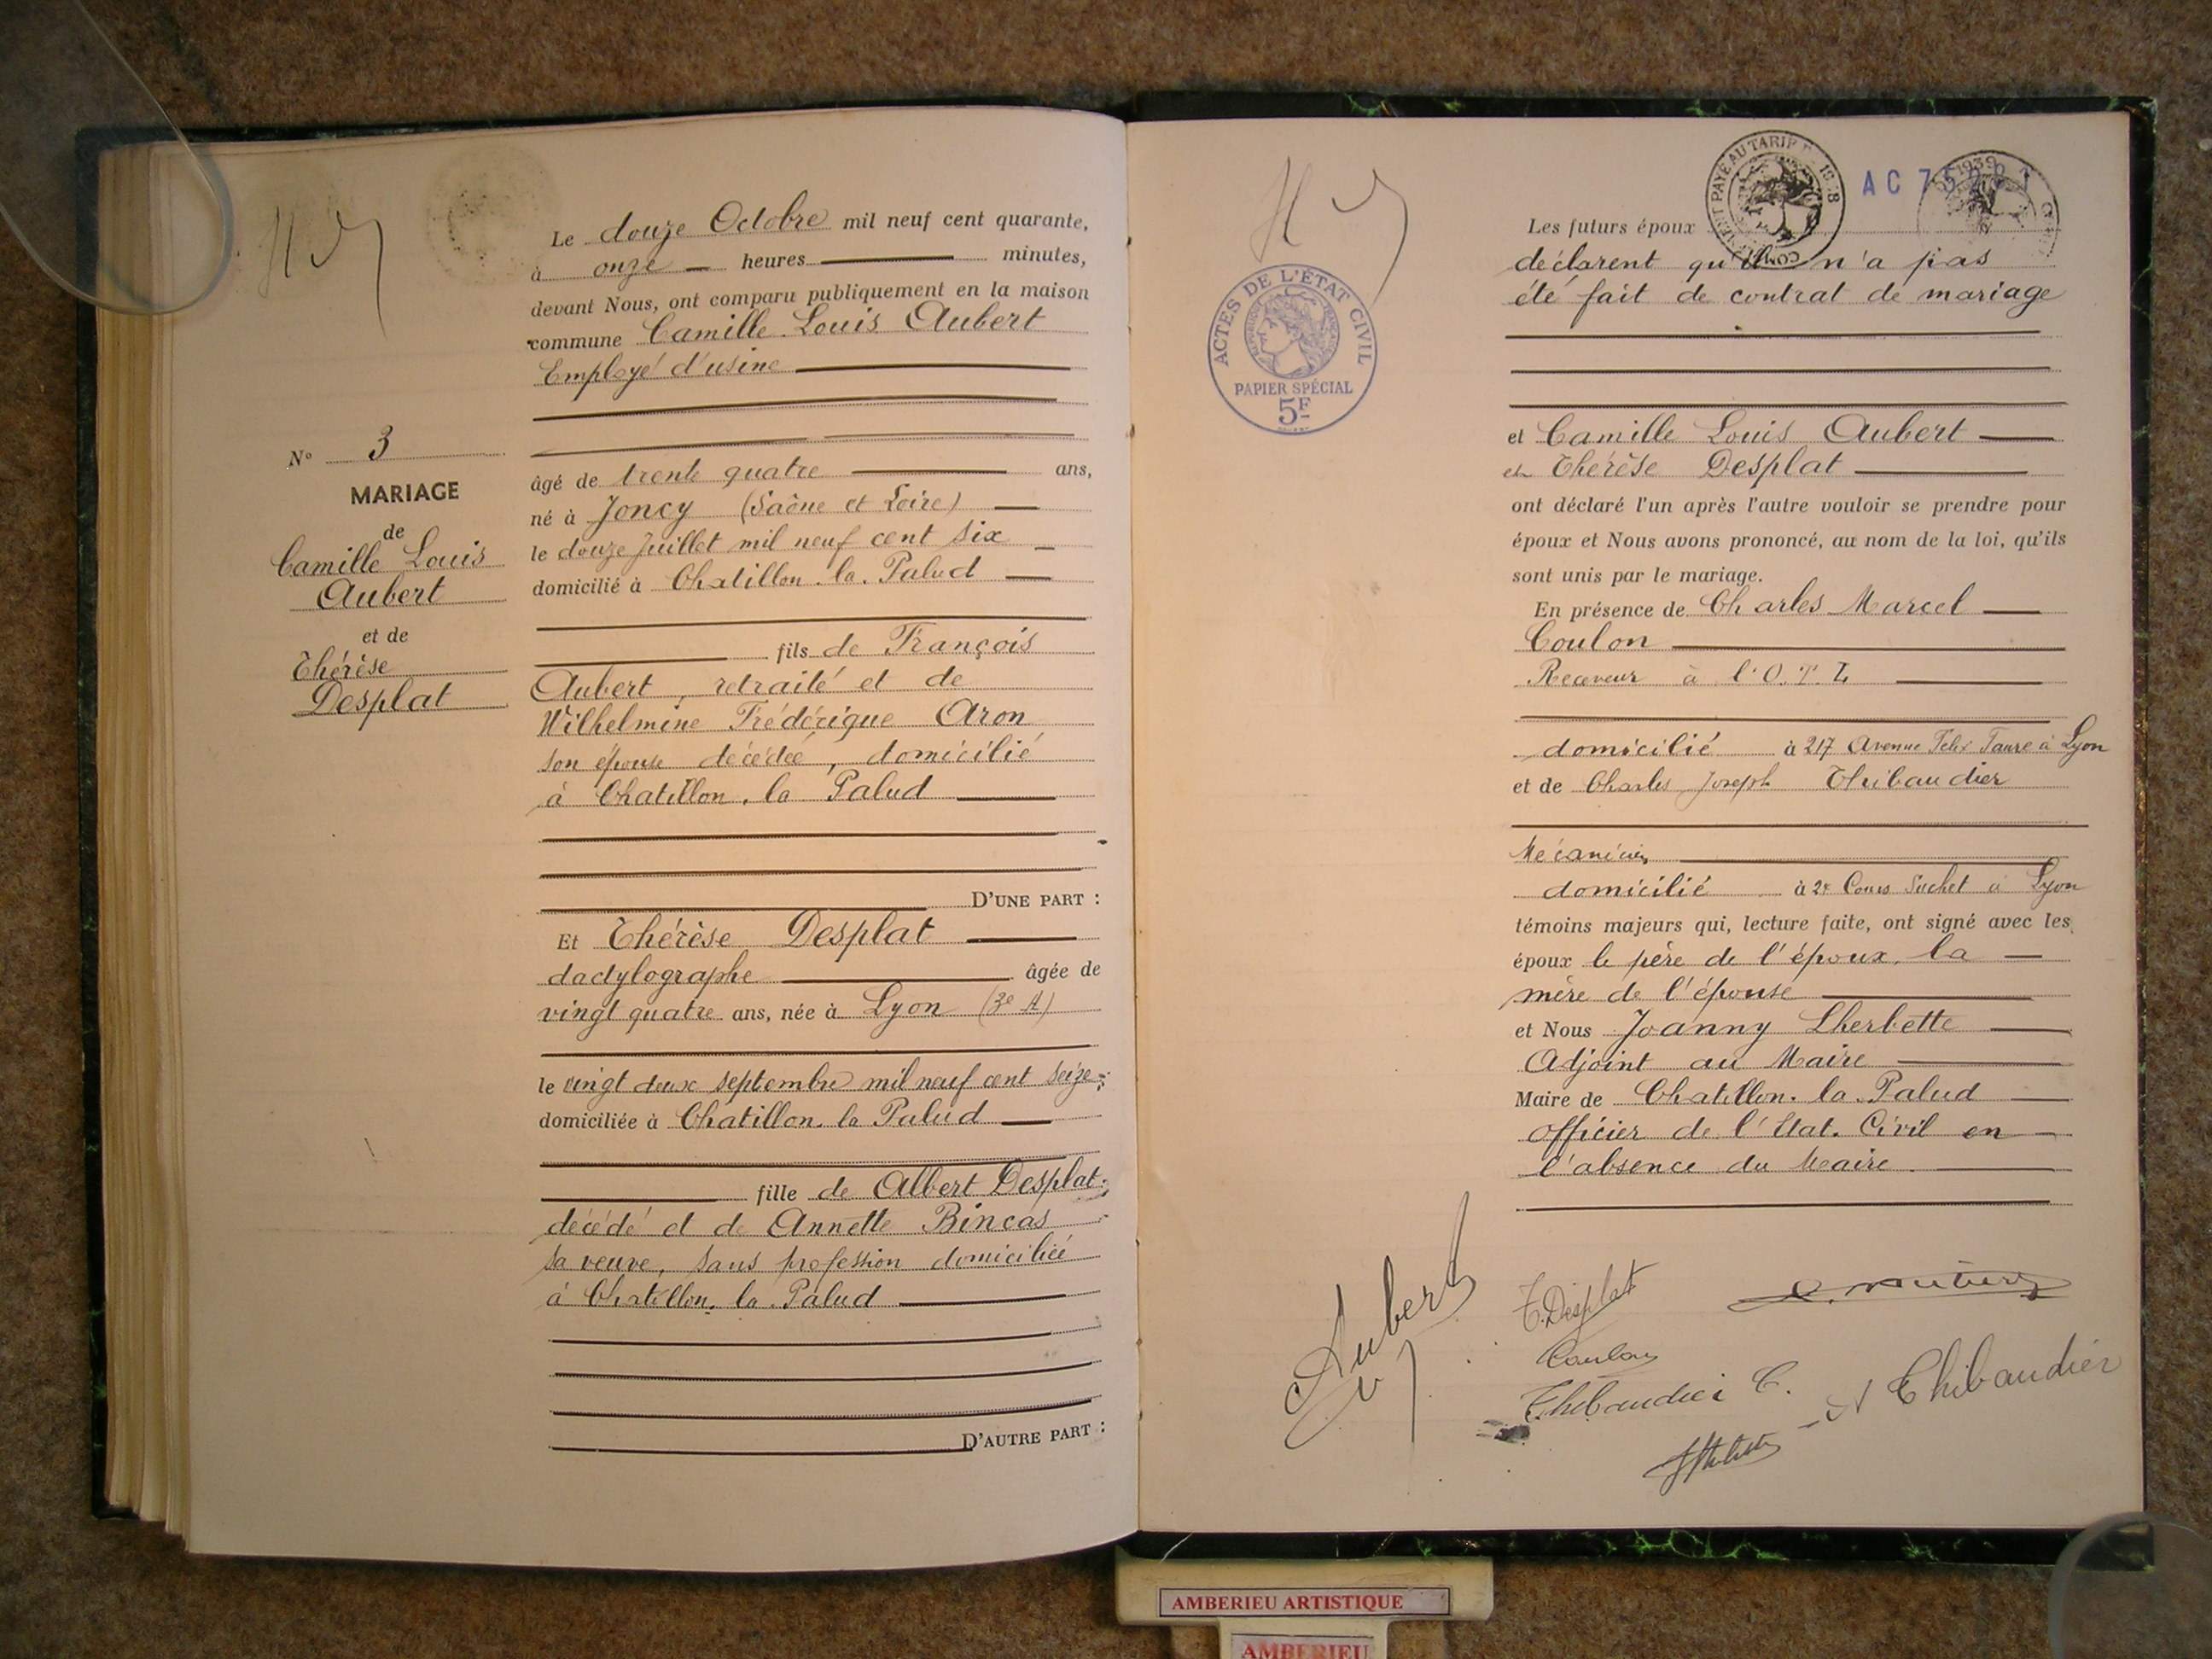 Le douze Octobre mil neuf cent quarante,
à onze heures minutes,
devant Nous, ont comparu publiquement en la maison
commune Camille Louis Aubert
Employé d'usine
N° 3
MARIAGE
de
Camille Louis
Aubert
et de
Thérèse
Desplat
âgé de trente quatre ans,
né à Joncy (Saône et Loire)
le douze Juillet mil neuf cent six
domicilié à Chatillon. la. Palud
fils de François
Aubert, retraité et de
Wilhelmine Frédérique Aron
son épouse décédée, domicilié
à Chatillon. la Palud
D'UNE PART :
Et Thérèse Desplat
dactylographe âgée de
vingt quatre ans, née à Lyon (3e A)
le vingt deux septembre mil neuf cent seize
domiciliée à Chatillon. la Palud
fille de Albert Desplat
décédé et de Annette Bincas
sa veuve, sans profession domiciliée
à Chatillon. la. Palud
D'AUTRE PART :
AC
ACTES DE L'ÉTAT CIVIL
RÉPUBLIQUE FRANÇAISE
PAPIER SPÉCIAL
5F
Les futurs époux
déclarent qu'il n'a pas
été fait de contrat de mariage
et Camille Louis Aubert
et Thérèse Desplat
ont déclaré l'un après l'autre vouloir se prendre pour
époux et Nous avons prononcé, au nom de la loi, qu'ils
sont unis par le mariage.
En présence de Charles Marcel
Coulon
Receveur à l'O.T.L
domicilié à 217 Avenue Félix Faure à Lyon
et de Charles Joseph Thibaudier
Mécanicien
domicilié à Cours Suchet à Lyon
témoins majeurs qui, lecture faite, ont signé avec les
époux le père de l'époux, la
mère de l'épouse
et Nous Joanny Lherbette
Adjoint au Maire
Maire de Chatillon. la. Palud
officier de l'Etat. Civil en
l'absence du Maire
Aubert
T. Desplat
Coulon
Thibaudier C.
Thibaudier
AMBERIEU ARTISTIQUE
AMBERIEU